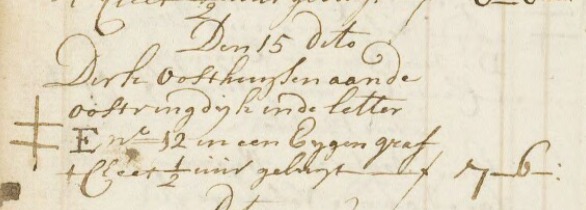 Den 15 dito
Dirk Oosthuysen aande
oostringdijk inde letter
E no 12 in een Eygen graf
t Cleet ½ uur geluyt — f 7—6—: